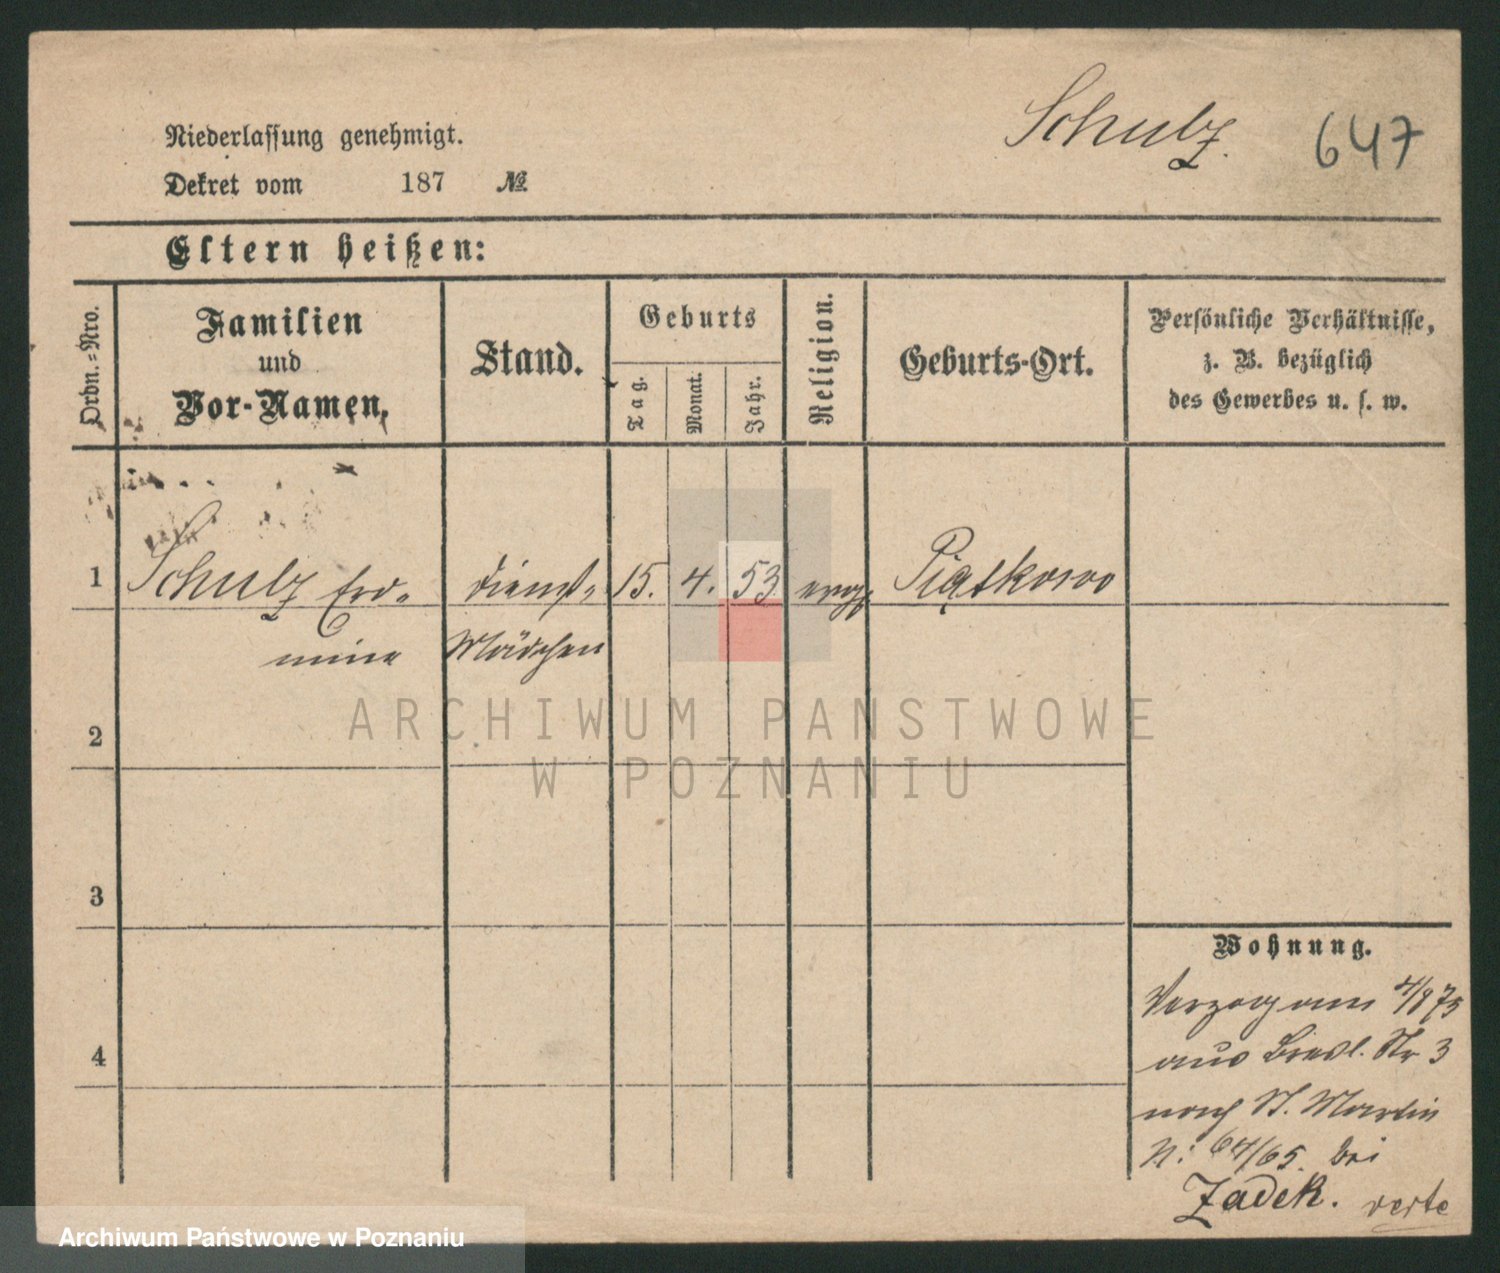 Schulz.
647
Niederlassung genehmigt.
Dekret vom 187 №
Eltern heißen:
Ordn.-Nro.
Familien
und
Vor-Namen.
Stand.
Geburts
Tag.
Monat.
Jahr.
Religion.
Geburts-Ort.
Persönliche Verhältnisse,
z. B. bezüglich
des Gewerbes u. s. w.
1 Schulz Erd- Dienst- 15. 4. 53 evg. Piątkowo
mine Mädchen
2
3
4
Wohnung.
Verzog am 4/8 75
aus Bresl. Str 3
nach St. Martin
N: 64/65. bei
Zadek. verte
ARCHIWUM PAŃSTWOWE
W POZNANIU
Archiwum Państwowe w Poznaniu